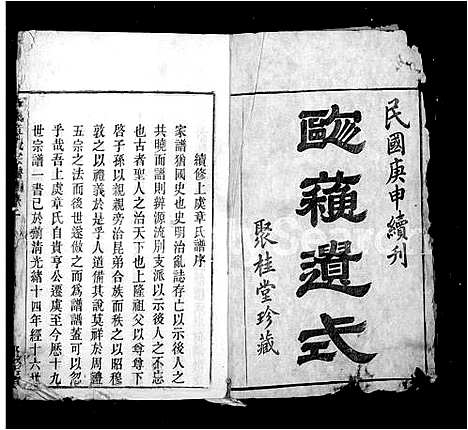 民國庚申續刊
歐蘇遺式
聚桂堂珍藏
續修上虞章氏譜序
家譜猶國史也史明治亂誌存亡以示後人之
共曉而譜則辨源流别支派以示後人之不忘
也古者聖人之治天下也上隆祖父以尊尊下
啓子孫以親親旁治昆弟合族而秩之以昭穆
敦之以禮義於是乎人道備其說莫祥於周禮
五宗之法而後世遂倣之而爲譜譜蓋可以忽
乎哉吾上虞章氏自貴亨公遷虞至今歷十九
世宗譜一書已於前清光緒十四年經十六世